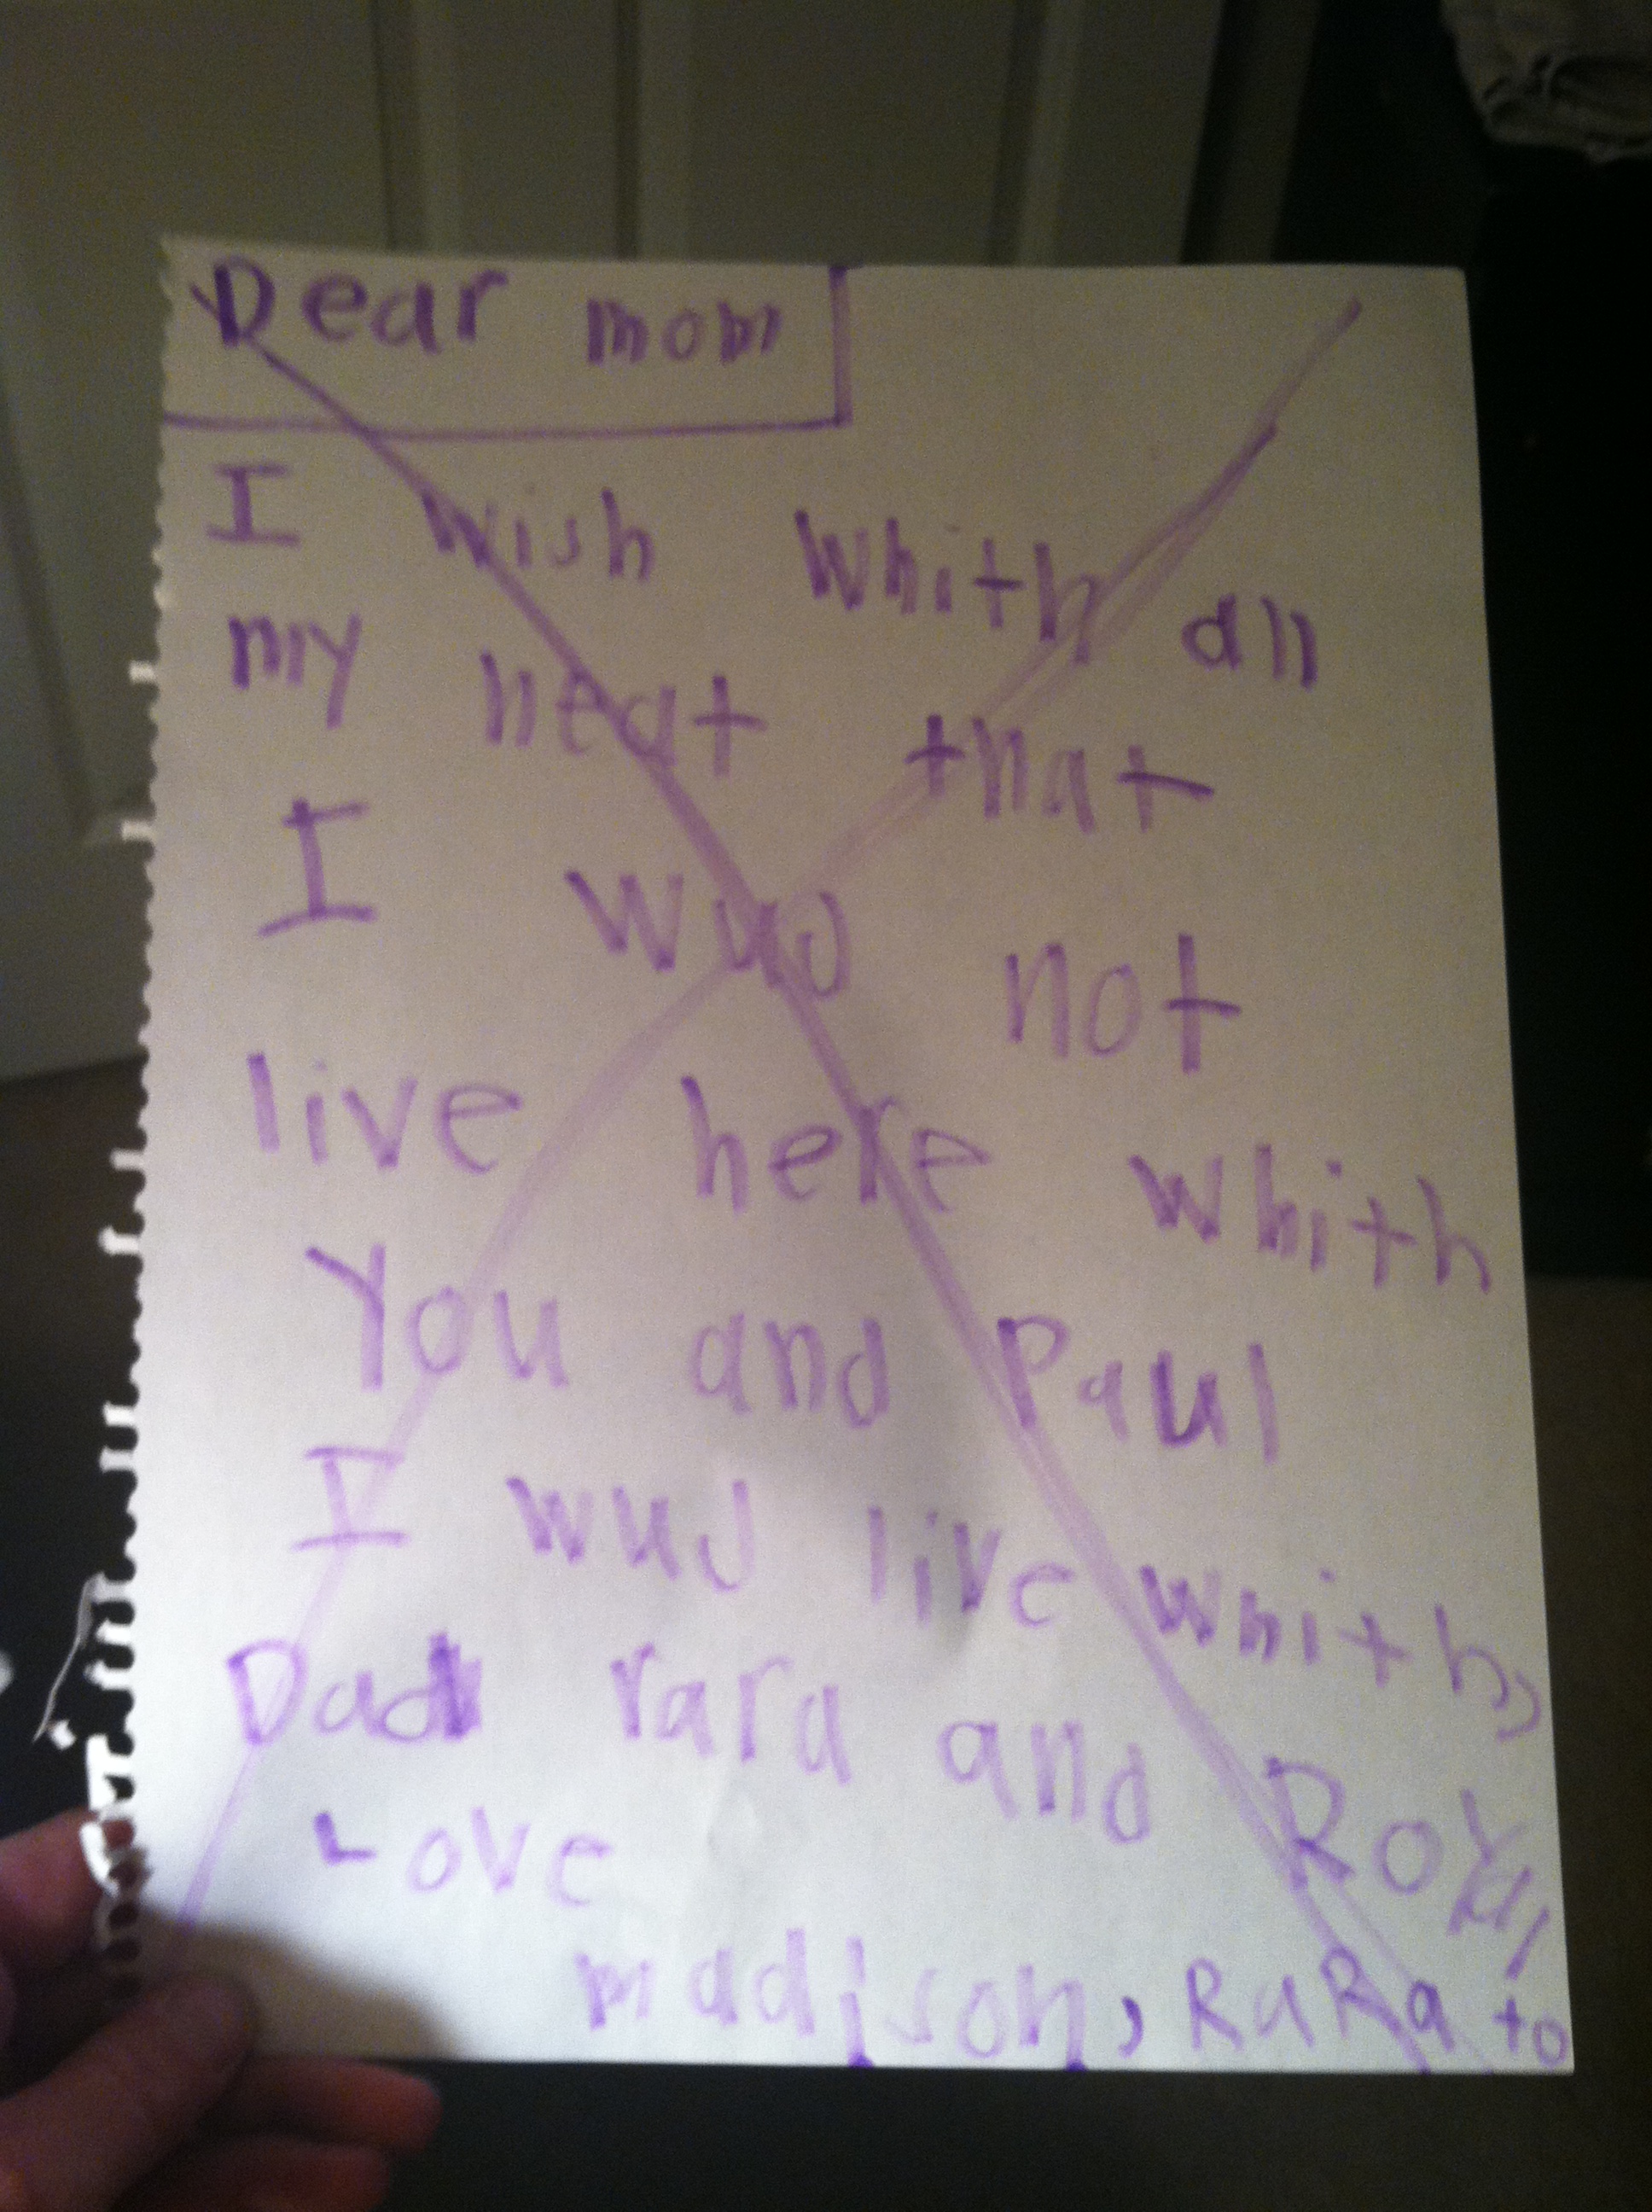 Dear mom
I wish whith all
my heat that
I wuD not
live here whith
You and Paul
I wuJ live whith,
Dad rara and
Love
madison, RaRa to